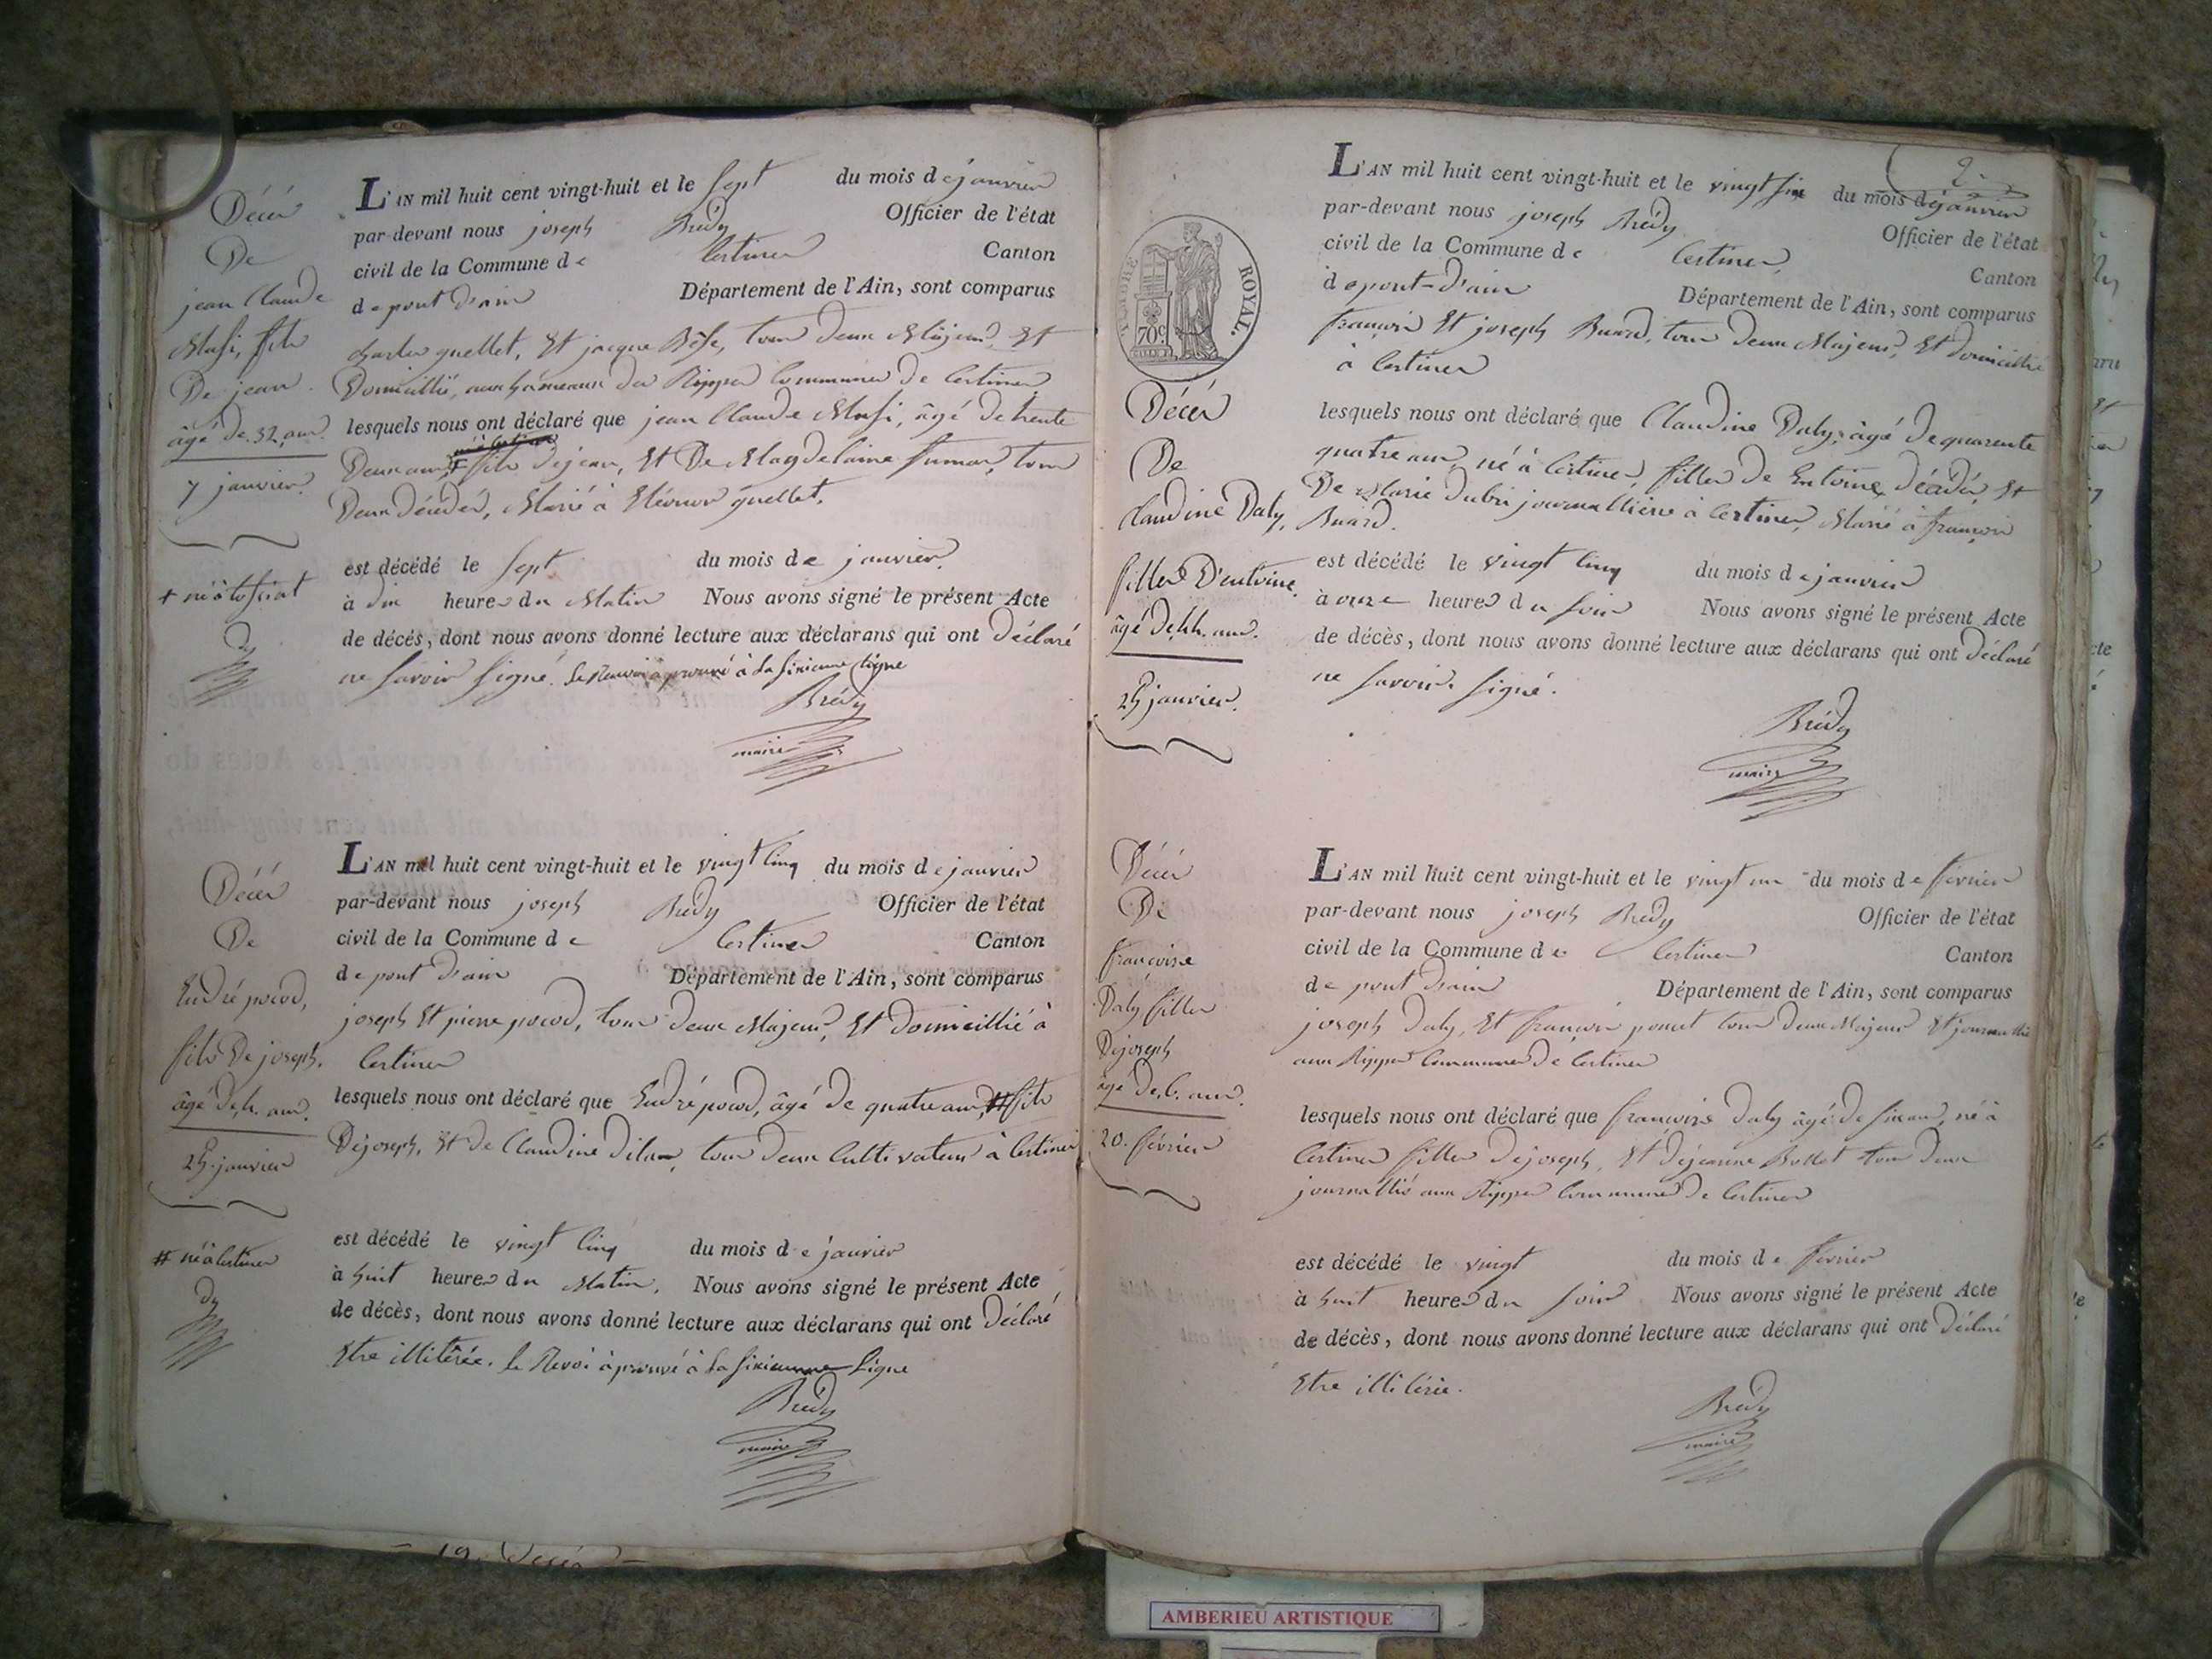 Décès
De
jean Claude
Musi, fils
De jean
âgé de 32 ans.
7 janvier.
L'AN mil huit cent vingt-huit et le sept du mois de janvier
par-devant nous joseph Brédy Officier de l'état
civil de la Commune de Certines Canton
de pont D'ain Département de l'Ain, sont comparus
quellet, Et jacque tous Deux Majeurs, Et
Domicillié, aux hameaux des Rippes Communes De Certines
lesquels nous ont déclaré que jean Claude Musi, âgé de trente
Deux ans, fils de jean, Et De Magdelaine tous
Deux Décédés, Marié à Eléonor quellet.
+ né à tossiat
est décédé le sept du mois de janvier.
à dix heures du Matin Nous avons signé le présent Acte
de décès, dont nous avons donné lecture aux déclarans qui ont Déclaré
ne savoir signé. Le Renvoi aprouvé à la sixieme ligne
Brédy
maire
Décès
De
Endré pocod,
fils De joseph.
âgé De 4. ans.
25 janvier
L'AN mil huit cent vingt-huit et le vingt Cinq du mois de janvier
par-devant nous joseph Brédy Officier de l'état
civil de la Commune de Certines Canton
de pont D'ain Département de l'Ain, sont comparus
joseph Et pierre pocod, tous Deux Majeurs, Et Domicillié à
Certines
lesquels nous ont déclaré que Endré pocod, âgé De quatre ans, # fils
De joseph, Et de Claudine tous Deux Cultivateurs à Certines
# né à Certines
est décédé le vingt Cinq du mois de janvier
à huit heures du Matin. Nous avons signé le présent Acte
de décès, dont nous avons donné lecture aux déclarans qui ont Déclaré
Etre illitérée. Le Revoi aprouvé à la sixieme Ligne
Brédy
maire
19. Décès
2.
TIMBRE ROYAL.
70c
Décès
De
Claudine Daly,
filles D'entoine.
âgé De 44. ans.
25 janvier.
L'AN mil huit cent vingt-huit et le vingt six du mois de janvier
par-devant nous joseph Brédy Officier de l'état
civil de la Commune de Certines, Canton
de pont-D'ain Département de l'Ain, sont comparus
françois Et joseph Buard, tous Deux Majeurs, Et Domicillié
à Certines
lesquels nous ont déclaré que Claudine Daly, âgé De quarente
quatre ans, né à Certines, filles De Entoine, décédés, Et
De Marie journalliere à Certines, Marié à françois
Buard.
est décédé le vingt Cinq du mois de janvier
à onze heures du soir Nous avons signé le présent Acte
de décès, dont nous avons donné lecture aux déclarans qui ont Déclaré
ne savoir signé.
Brédy
maire
Décès
De
françoise
Daly filles
De joseph
âgé De 6. ans.
20. février
L'AN mil huit cent vingt-huit et le vingt un du mois de février
par-devant nous joseph Brédy Officier de l'état
civil de la Commune de Certines Canton
de pont D'ain Département de l'Ain, sont comparus
joseph Daly, Et françois tous Deux Majeurs Et
aux Rippes Communes De Certines
lesquels nous ont déclaré que françoise Daly âgé de six ans, né à
Certines filles De joseph, Et De jeanne Bollet tous Deux
journallié aux Rippes Communes De Certines
est décédé le vingt du mois de février
à huit heures du soir Nous avons signé le présent Acte
de décès, dont nous avons donné lecture aux déclarans qui ont Déclaré
Etre illitérée.
Brédy
maire
AMBERIEU ARTISTIQUE